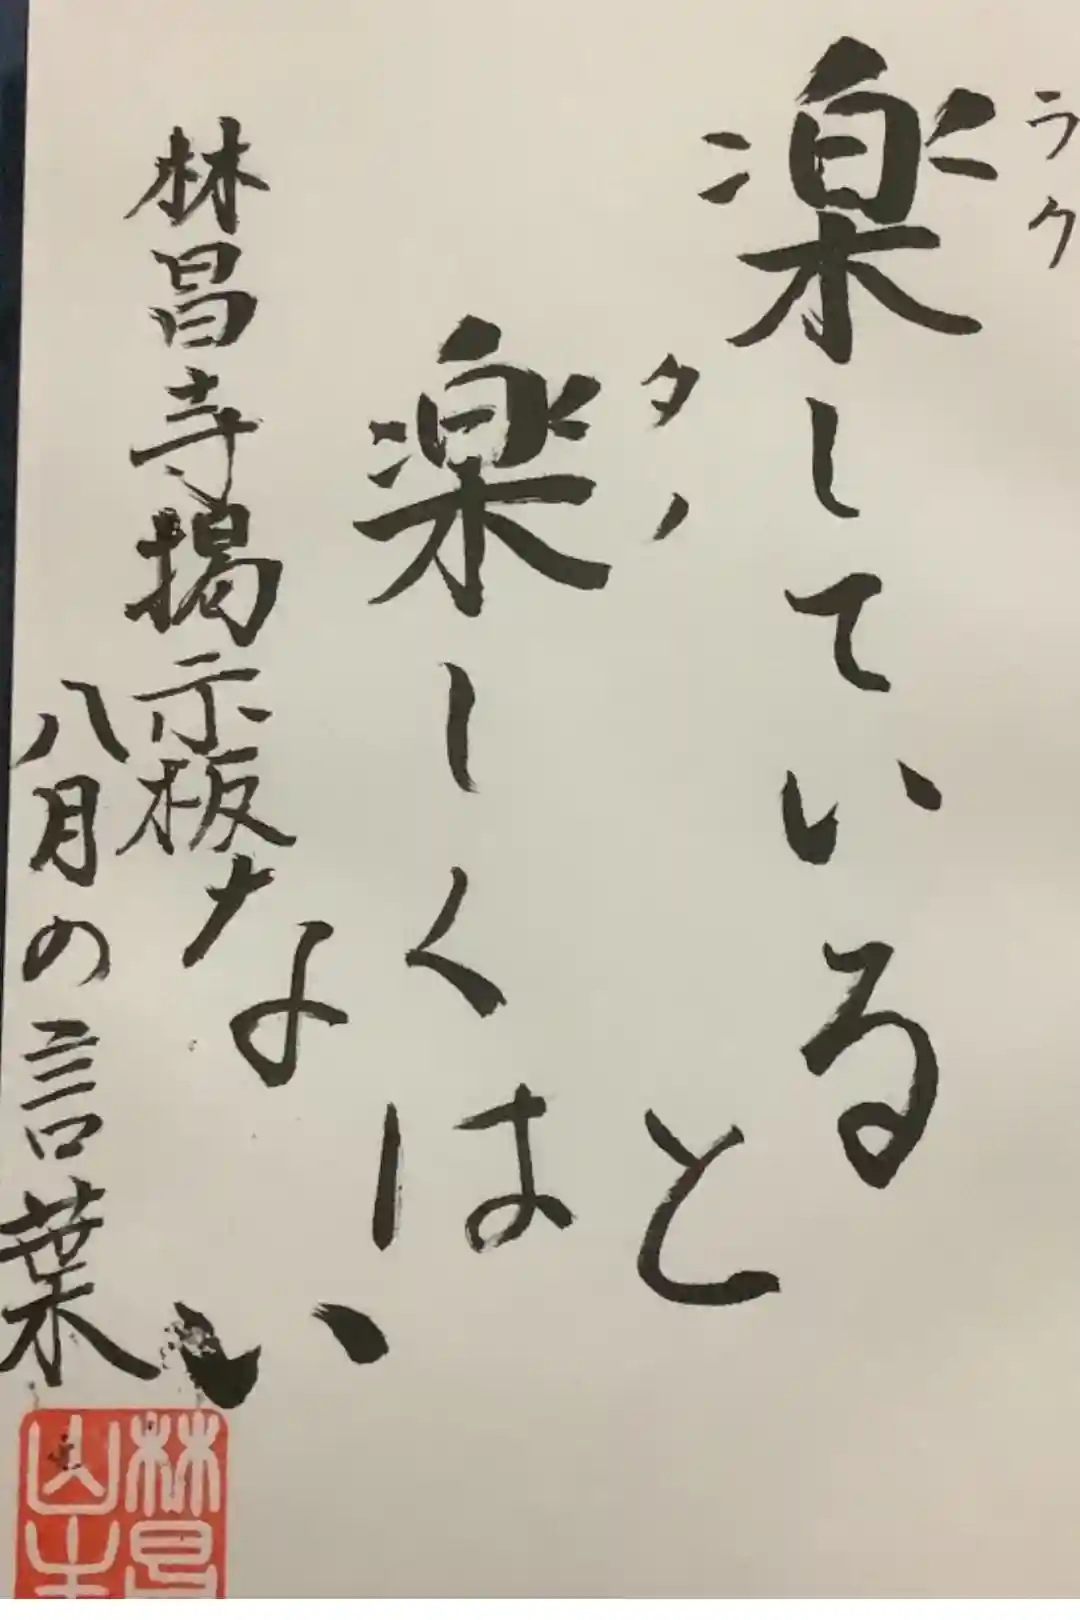 ラク
楽している
と
タノ
楽しくは
ない
林昌寺掲示板
八月の言葉
林昌
山